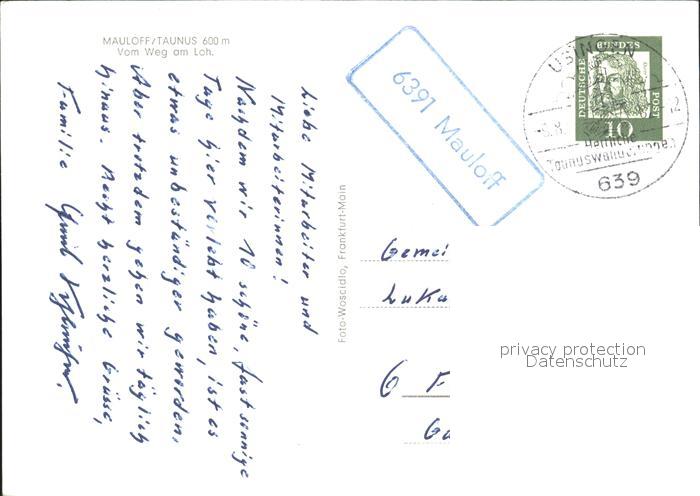 MAULOFF/TAUNUS 600 m
Vom Weg am Loh.
Liebe Mitarbeiter und
Mitarbeiterinnen!
Nachdem wir 10 schöne, fast sonnige
Tage hier verlebt haben, ist es
etwas unbeständiger geworden.
Aber trotzdem gehen wir täglich
hinaus. Recht herzliche Grüsse,
Familie
Foto-Woscidlo, Frankfurt-Main
6391 Mauloff
USINGEN
639
DEUTSCHE
BUNDES
POST
10
Gemei
Luka
6 F
Ga
privacy protection
Datenschutz